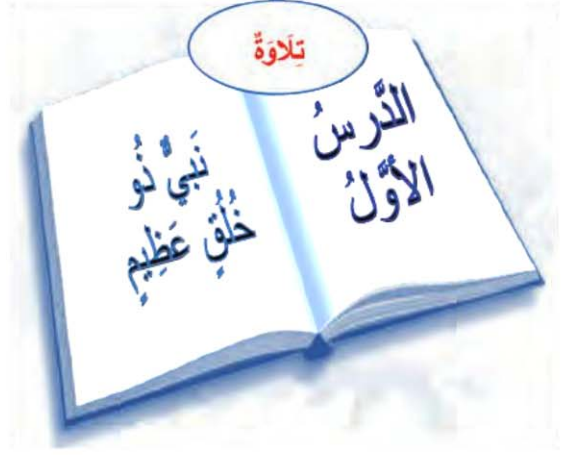 تِلَاوَةٌ
الدَّرسُ
الأَوَّلُ
نَبِيٌّ ذُو
خُلُقٍ عَظِيمٍ